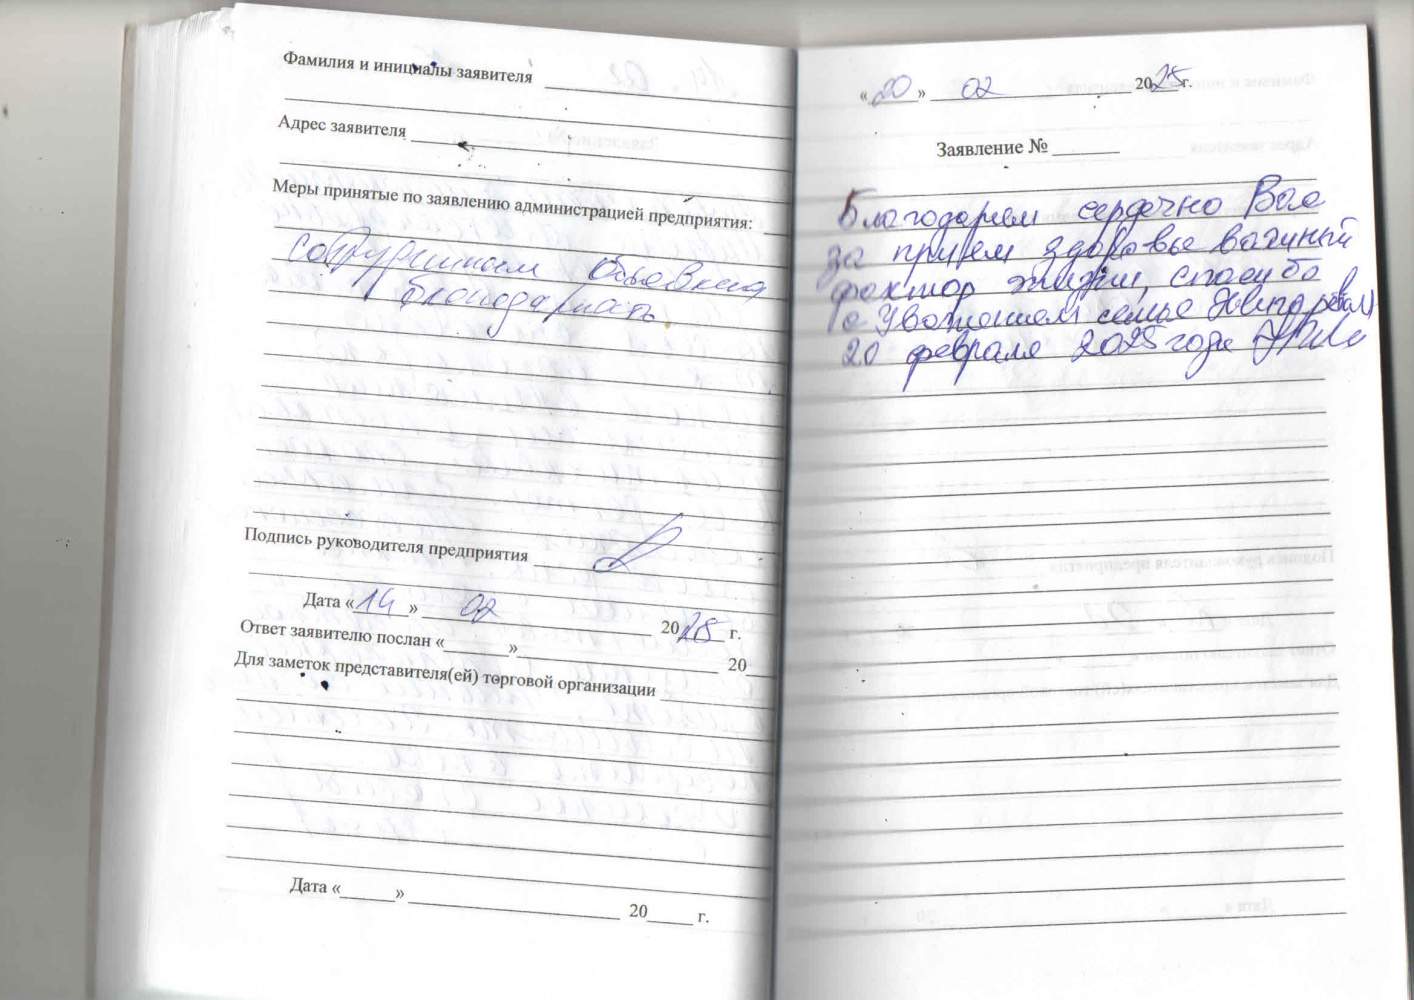 Фамилия и инициалы заявителя
Адрес заявителя
Меры принятые по заявлению администрацией предприятия:
сотрудникам объявлена
благодарность
Подпись руководителя предприятия
Дата «14» 02 2025 г.
Ответ заявителю послан «____»____ 20__
Для заметок представителя(ей) торговой организации
Дата «____» ____ 20____ г.
«20» 02 2025г.
Заявление №
Благодарем сердечно Вас
за прием здоровье важный
фактор жизни, спасибо
(с Уважением семья
20 февраля 2025 года